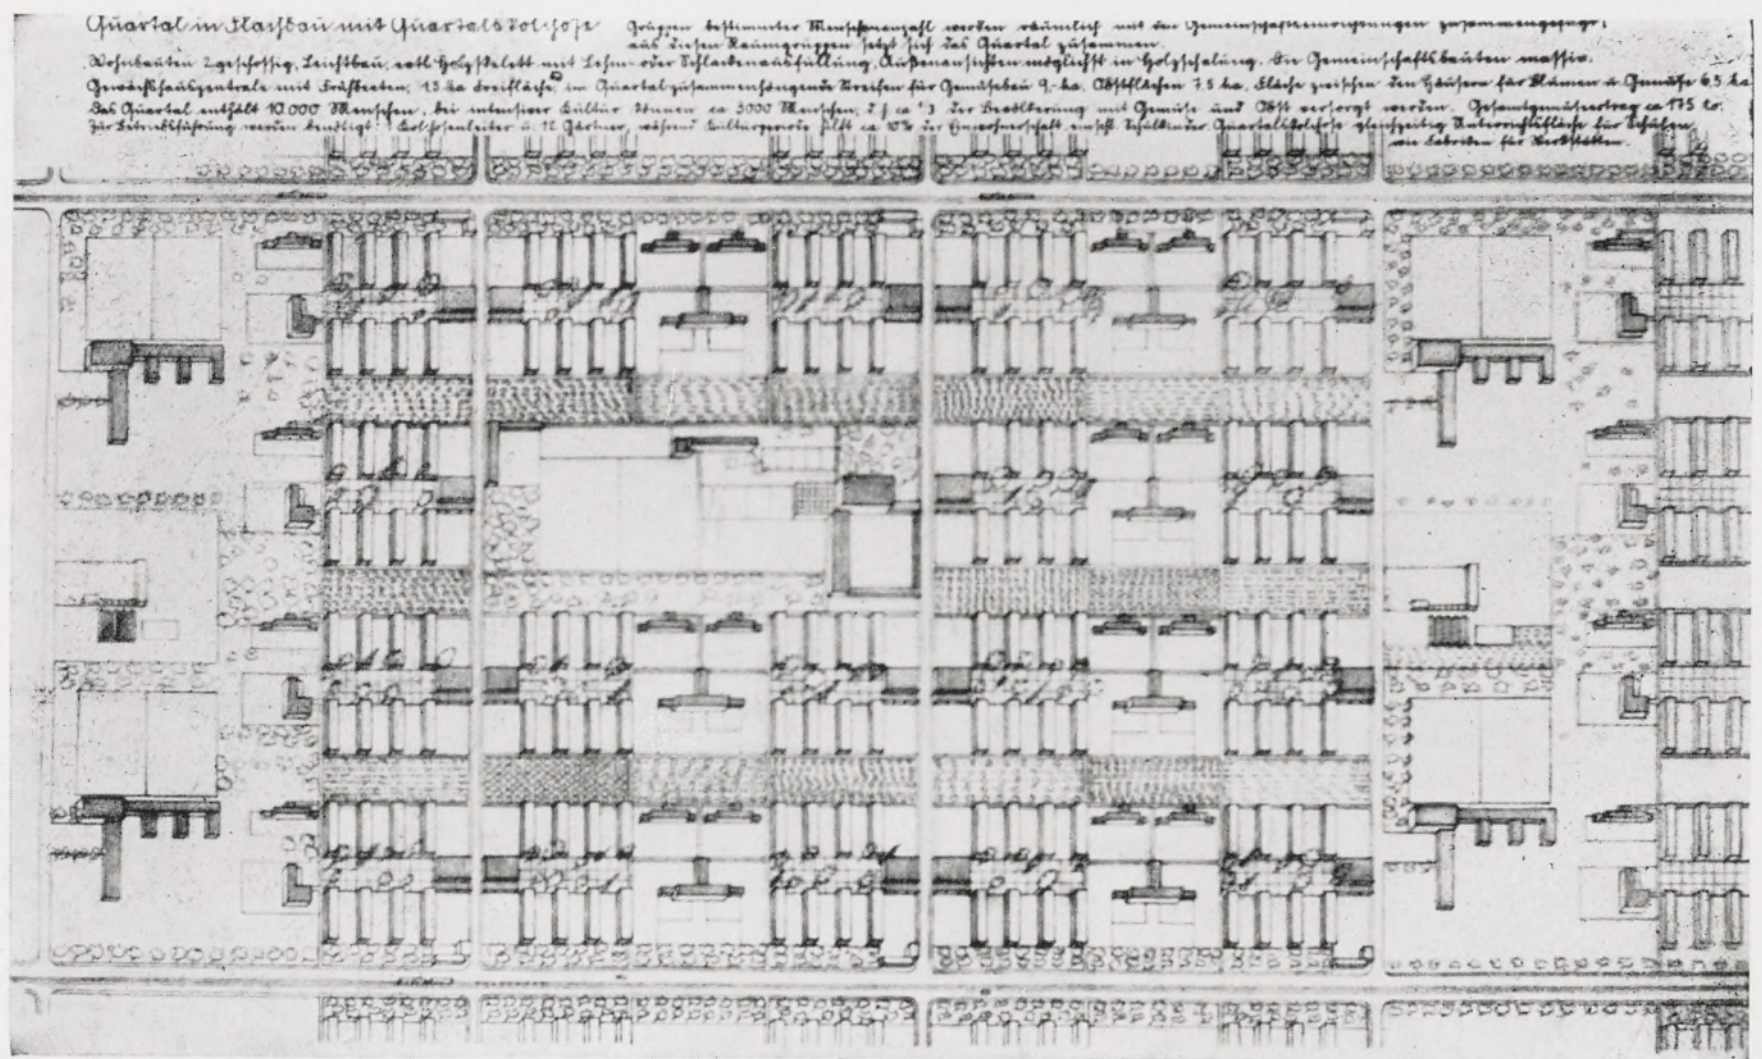 Quartal in Flachbau mit Quartalskolchose
Gruppen bestimmter Menschenanzahl werden räumlich mit den Gemeinschaftseinrichtungen zusammengefügt;
aus diesen Raumgruppen setzt sich das Quartal zusammen.
Wohnbauten 2geschossig, Leichtbau, evtl Holzskelett mit Lehm- oder Schlackenausfüllung, Außenansichten möglichst in Holzschalung. Die Gemeinschaftsbauten massiv.
Gewächshauszentrale mit Frühbeeten, 13 ha Freifläche, im Quartal zusammenhängende Streifen für Gemüsebau 9 ha, Obstflächen 7.5 ha, Fläche zwischen den Häusern für Blumen u Gemüse 6.5 ha
Das Quartal enthält 10.000 Menschen, bei intensiver Kultur können ca 3000 Menschen, d.h ca 1/3 der Bevölkerung mit Gemüse und Obst versorgt werden. Gesamtgemüseertrag ca 175 to.
Zur Betriebsführung werden benötigt: 1 Kolchosenleiter u. 12 Gärtner, während Kulturperiode hilft ca 10% der Einwohnerschaft einschl. Schulkinder Quartalskolchose gleichzeitig Unterrichtsfläche für Schulen
wie Fabriken für Werkstätten.